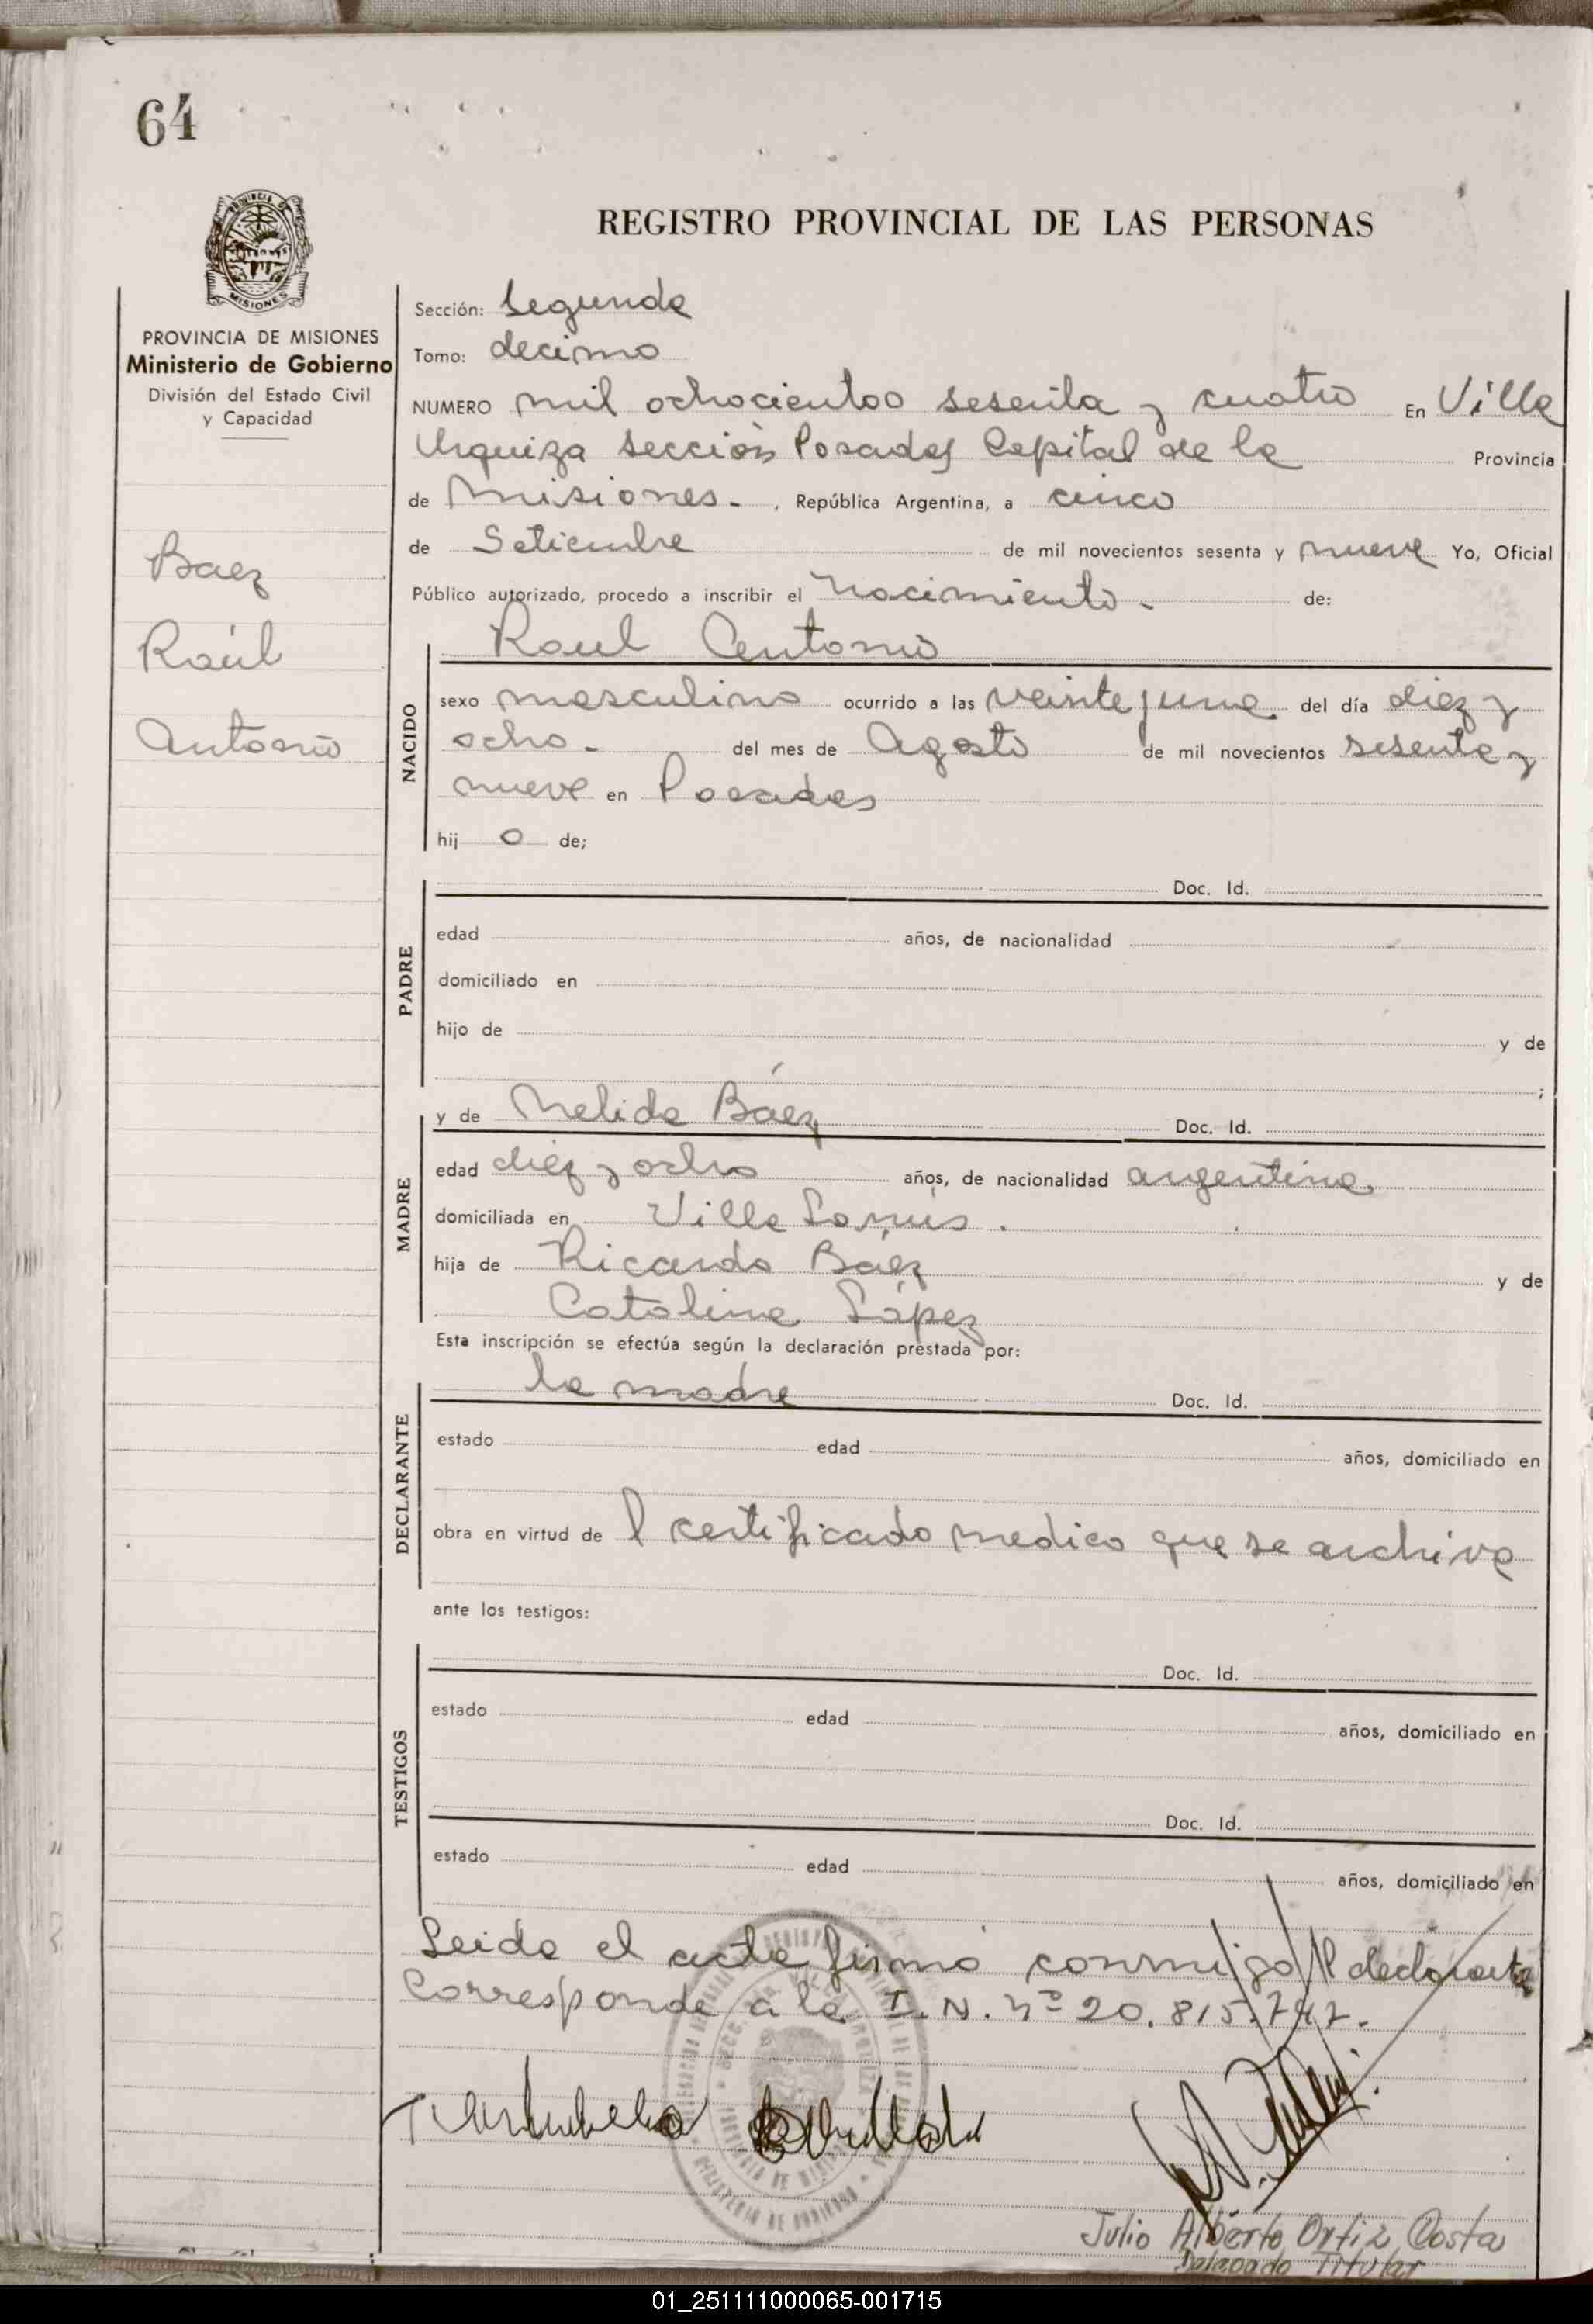 64
PROVINCIA DE MISIONES
Ministerio de Gobierno
División del Estado Civil
y Capacidad
Baez
Raúl
Antonio
REGISTRO PROVINCIAL DE LAS PERSONAS
Sección: Segunda
Tomo: decimo
NUMERO mil ochocientos sesenta y cuatro En Villa
Urquiza Sección Posadas Capital de la Provincia
de Misiones - , República Argentina, a cinco
de Setiembre de mil novecientos sesenta y nueve Yo, Oficial
Público autorizado, procedo a inscribir el nacimiento - de:
Raul Antonio
NACIDO
sexo masculino ocurrido a las veinte y una del día diez y
ocho - del mes de Agosto de mil novecientos sesenta y
nueve en Posadas
hij o de;
PADRE
Doc. Id.
edad años, de nacionalidad
domiciliado en
hijo de y de
;
MADRE
y de Nelida Báez Doc. Id.
edad diez y ocho años, de nacionalidad argentina
domiciliada en Villa Lanús .
hija de Ricardo Báez y de
Catalina López
Esta inscripción se efectúa según la declaración prestada por:
DECLARANTE
la madre Doc. Id.
estado edad años, domiciliado en
obra en virtud de l certificado medico que se archiva
ante los testigos:
TESTIGOS
Doc. Id.
estado edad años, domiciliado en
Doc. Id.
estado edad años, domiciliado en
Leida el acta firmó conmigo l declarante
Corresponde a la I. N. nº 20.815.747.
Julio Alberto Ortiz Costa
Delegado Titular
01_251111000065-001715